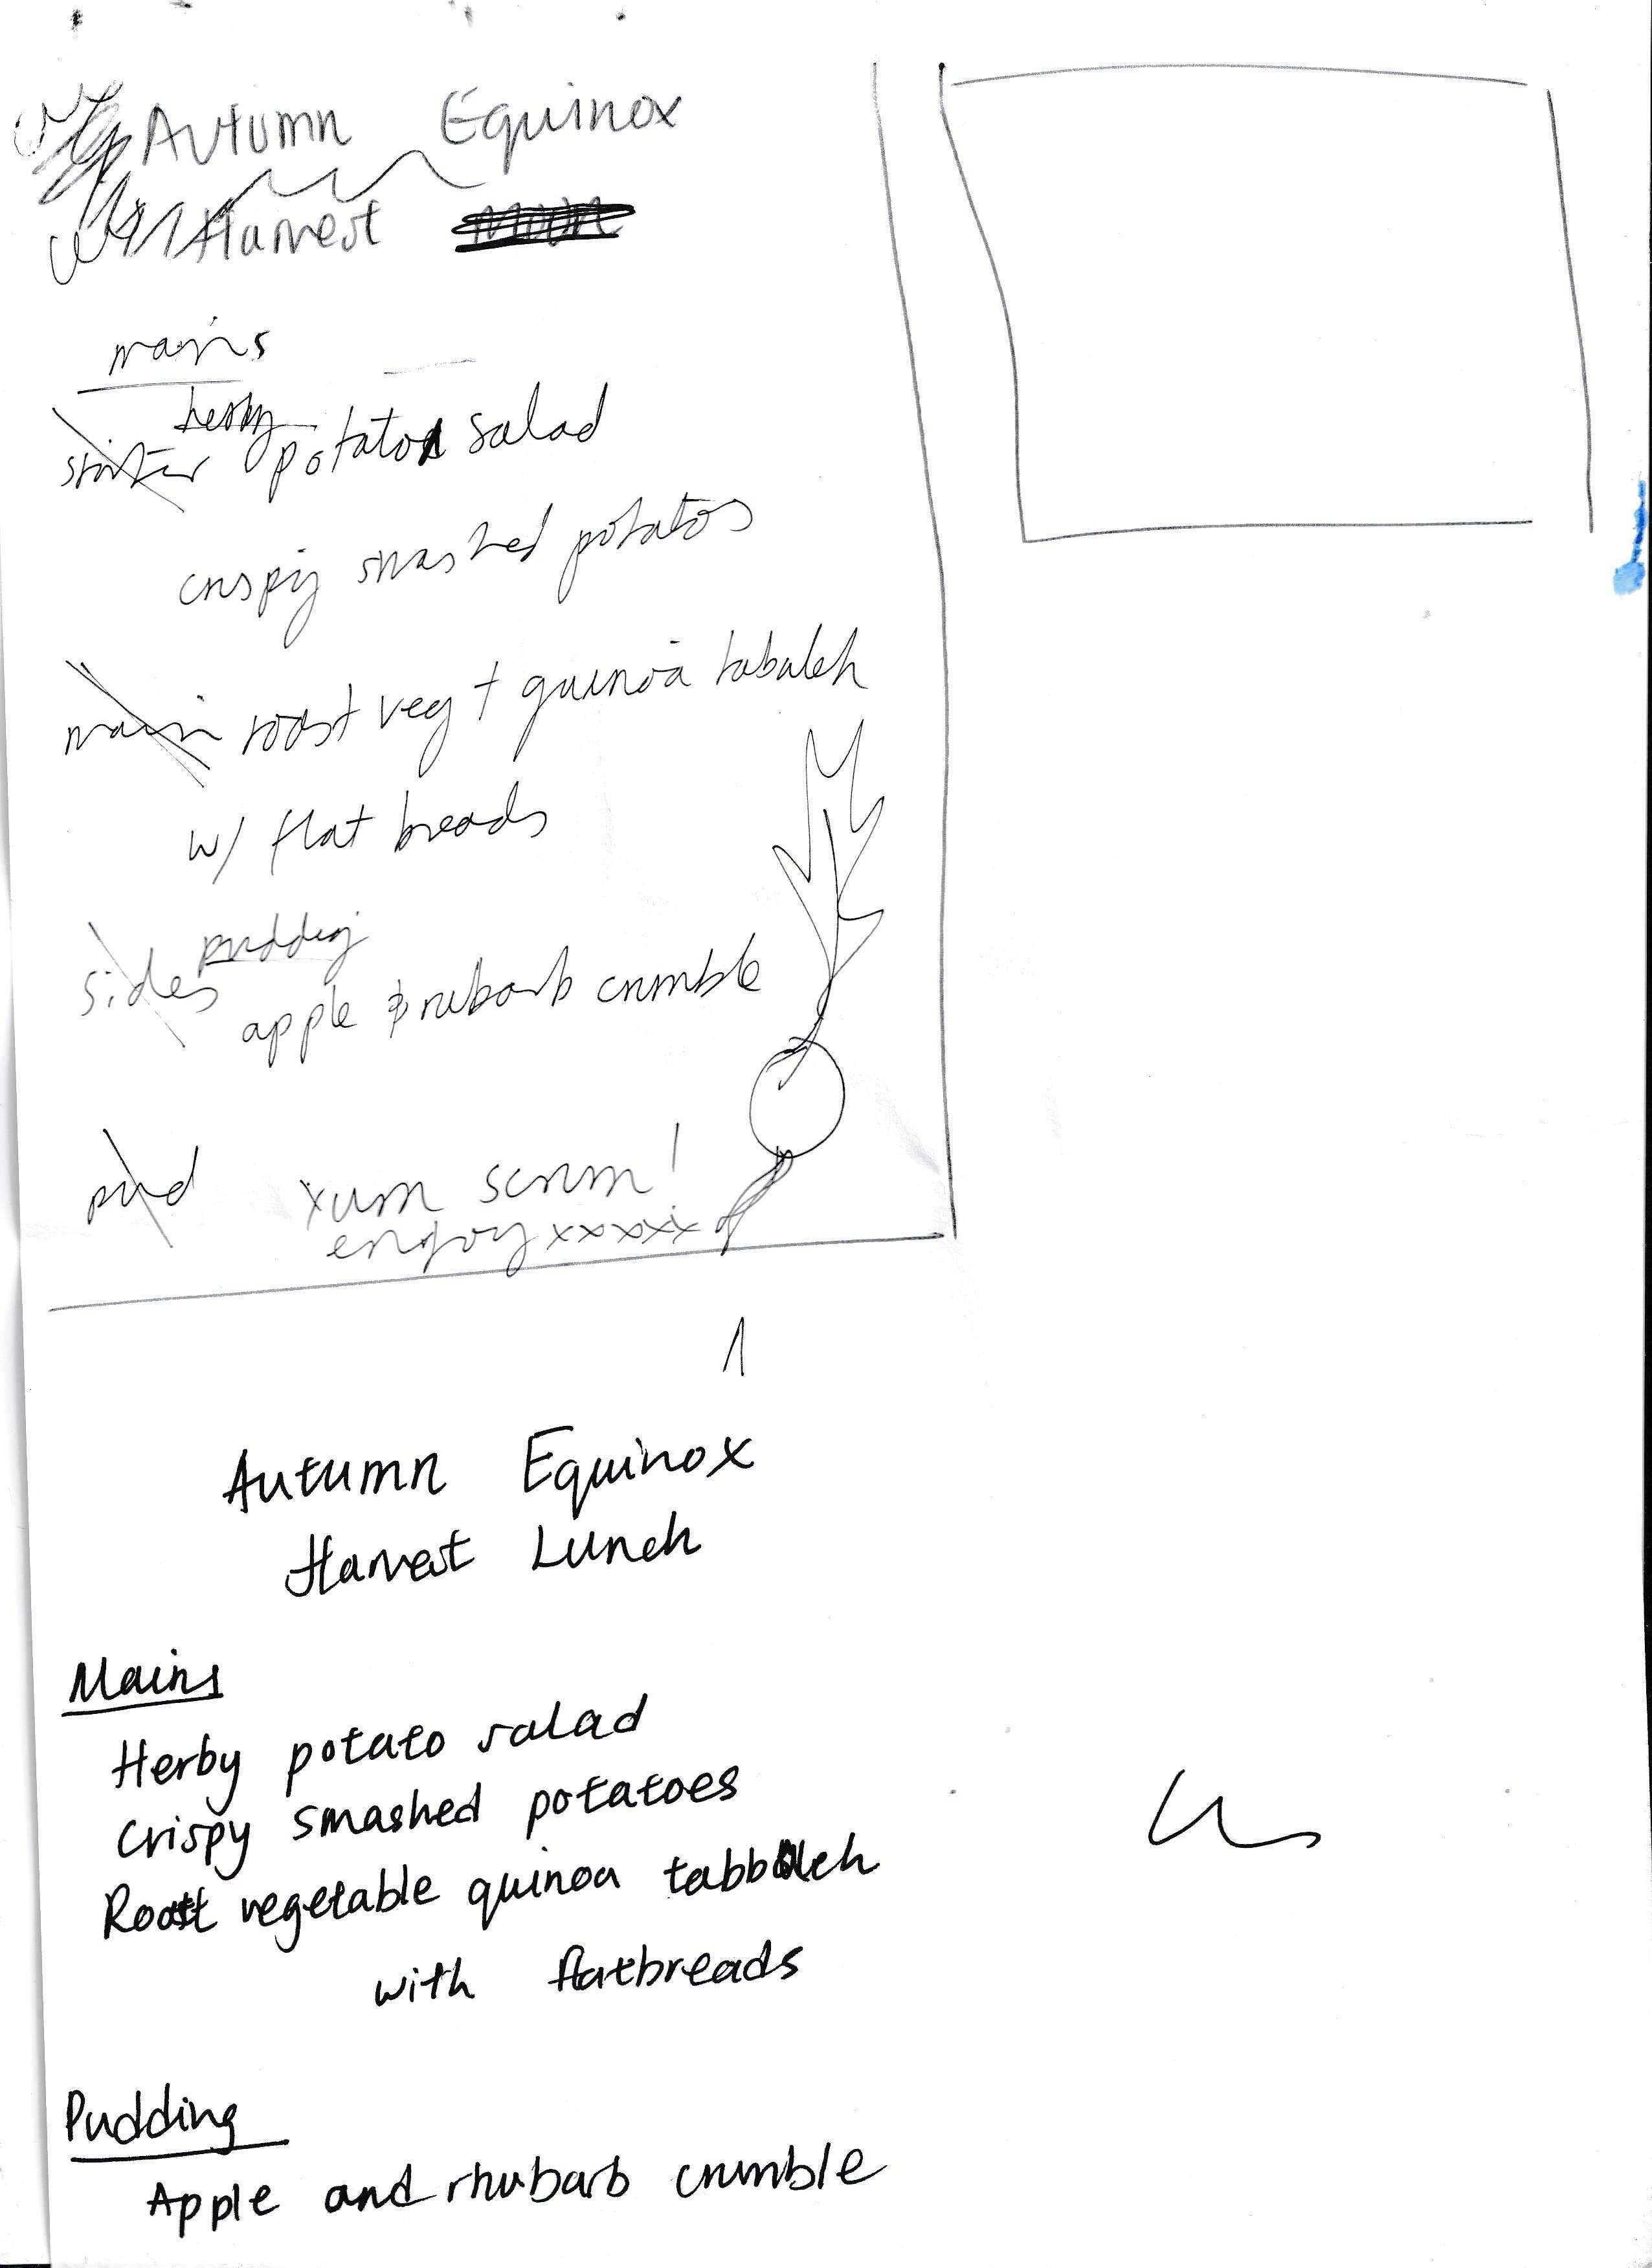 Autumn Equinox
Harvest Moon
mains
herby
starter potato salad
crispy smashed potatos
main roast veg + quinoa tabuleh
w/ flat breads
pudding
sides
apple & rubarb crumble
pud
yum scrum!
enjoy xxxxx
Autumn Equinox
Harvest Lunch
Mains
Herby potato salad
Crispy smashed potatoes
Roast vegetable quinoa tabbouleh
with flatbreads
Pudding
Apple and rhubarb crumble